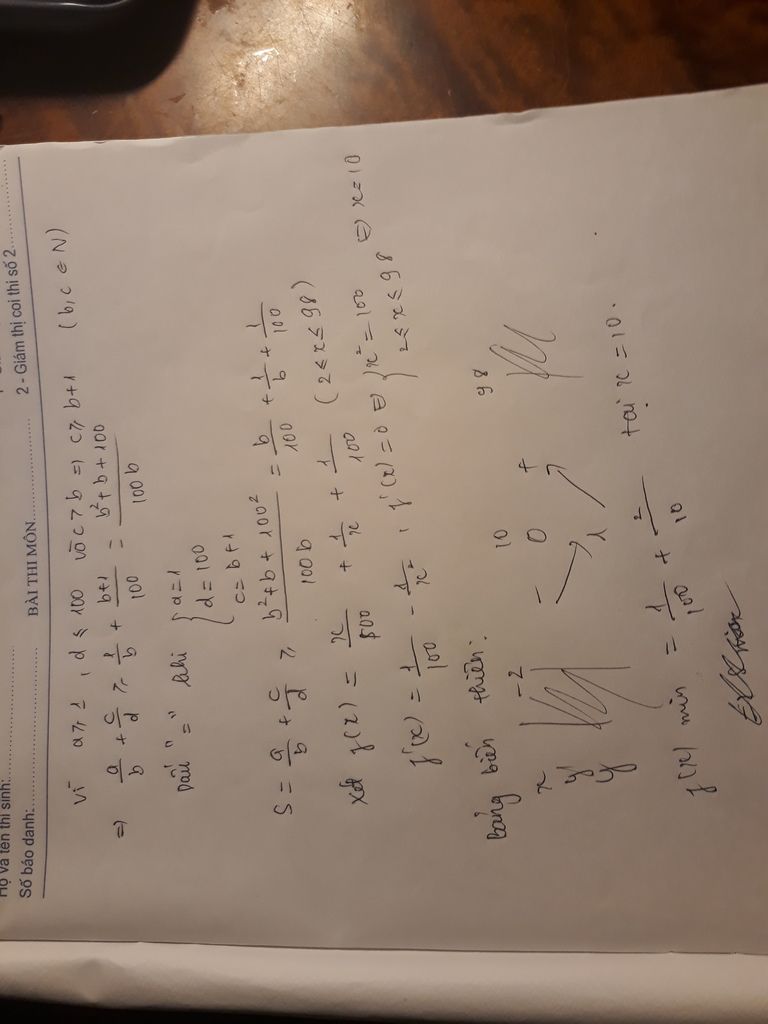 Họ và tên thí sinh:
Số báo danh: BÀI THI MÔN 2 - Giám thị coi thi số 2
Vì a ≥ 1, d ≤ 100 và c > b => c ≥ b+1 (b, c ∈ N)
=> a/b + c/d ≥ 1/b + (b+1)/100 = (b² + b + 100)/(100b)
Dấu "=" khi { a = 1
d = 100
c = b+1
S = a/b + c/d ≥ (b² + b + 100²)/(100b) = b/100 + 1/b + 1/100
Xét f(x) = x/100 + 1/x + 1/100 (2 ≤ x ≤ 98)
f'(x) = 1/100 - 1/x², f'(x) = 0 ⇔ { x² = 100 ⇔ x = 10
2 ≤ x ≤ 98
Bảng biến thiên:
x -2 10 98
y' - 0 +
y
f(x) min = 1/100 + 2/10 tại x = 10.